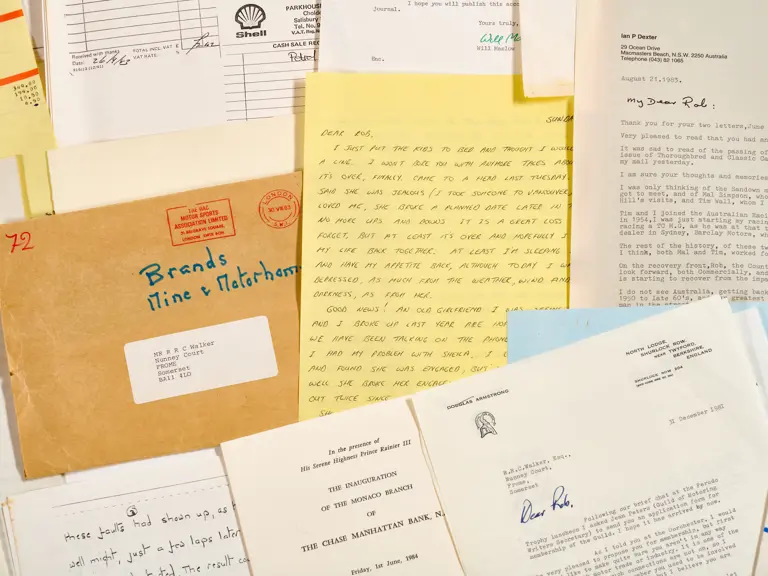 PARKHOUS
Salisbury
Tel. No.
V.A.T. Reg.
Shell
CASH SALE REC
Petrol
Received with thanks
Date:
TOTAL INCL. VAT £
VAT RATE: %
I hope you will publish this acco
Journal.
Yours truly,
Will Haslow
Enc.
Ian P Dexter
29 Ocean Drive
Macmasters Beach, N.S.W. 2250 Australia
Telephone (043) 82 1065
August 21, 1983.
My Dear Rob:
Thank you for your two letters, June
Very pleased to read that you had
It was sad to read of the passing of
issue of Thoroughbred and Classic Ca
my mail yesterday.
I am sure your thoughts and memories
I was only thinking of the Sandown
got to meet, and of Mal Simpson, who
Hill's visits, and Tim Wall, whom I
Tim and I joined the Australian
in 1954, I was just starting my racing
racing a TC M.G, as he was at that
dealer in Sydney, Barclay Motors,
The rest of the history, of these tw
I think, both Mal and Tim, worked fo
On the recovery front, Rob, the Count
look forward, both Commercially, and
is starting to recover from the impa
I do not see Australia, getting back
1950 to late 60's, greatest
SUNDA
DEAR ROB,
I JUST PUT THE KIDS TO BED AND THOUGHT I WOUL
A LINE. I WON'T BORE YOU WITH ANYMORE TALES ABO
IT'S OVER, FINALLY. CAME TO A HEAD LAST TUESDAY.
SAID SHE WAS JEALOUS (I TOOK SOMEONE TO VANCOUVER,
LOVED ME, SHE BROKE A PLANNED DATE LATER IN T
NO MORE UPS AND DOWNS IT IS A GREAT LOSS
FORGET, BUT AT LEAST IT'S OVER AND HOPEFULLY I
MY LIFE BACK TOGETHER. AT LEAST I'M SLEEPING
AND HAVE MY APPETITE BACK, ALTHOUGH TODAY I W
DEPRESSED, AS MUCH FROM THE WEATHER, WIND AND
DARKNESS, AS FROM HER.
GOOD NEWS! AN OLD GIRLFRIEND I WAS
AND I BROKE UP LAST YEAR ARE
WE HAVE BEEN TALKING ON THE PHONE
I HAD MY PROBLEM WITH SHEILA. I
AND FOUND SHE WAS ENGAGED, BUT
WELL SHE BROKE HER ENGAGE
OUT TWICE SINCE
SHE
72
The RAC
MOTOR SPORTS
ASSOCIATION LIMITED
LONDON
Brands
Mine & Motorhom
MR R R C Walker
Nunney Court
FROME
Somerset
BA11 4LO
these faults had shown up, as
well might, just a few laps later
The result
In the presence of
His Serene Highness Prince Rainier III
THE INAUGURATION
OF THE MONACO BRANCH
OF
THE CHASE MANHATTAN BANK, N.
Friday, 1st June, 1984
DOUGLAS ARMSTRONG
NORTH LODGE
SHURLOCK ROW
NEAR TWYFORD,
BERKSHIRE
ENGLAND
31 December 1981
R.R.C.Walker, Esq.,
Nunney Court,
Frome,
Somerset
Dear Rob,
Following our brief chat at the Ferodo
Trophy luncheon I asked Jean Peters (Guild of Motoring
Writers Secretary) to send you an application form for
membership of the Guild. I hope it has arrived by now.
As I told you at the Dorchester, I would
be very pleased to propose you for membership, but first